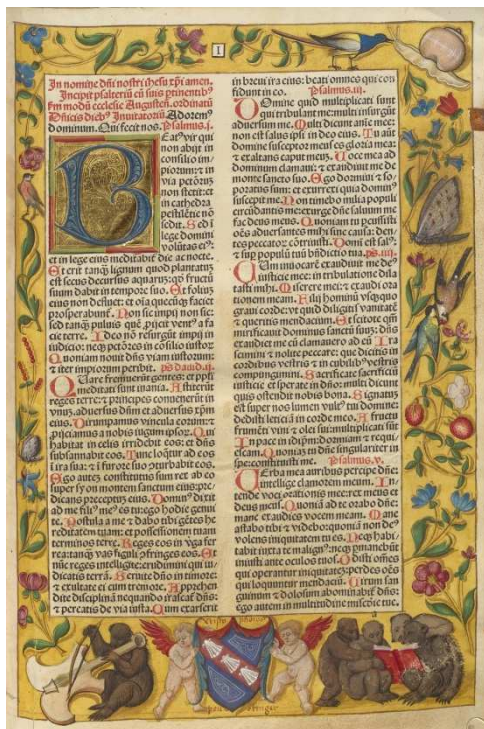 I
In nomine dñi nostri ihesu xp̃i amen.
Incipit psalteriũ cũ suis ptinentibꝰ
ẜm modũ ecclesie Augusteñ. ordinatũ
Dñicis diebꝰ Inuitatoriũ Adoremꝰ
dominum. Qui fecit nos. Psalmus. j.
BEatꝰ vir qui
non abijt in
consilio im-
piorum: et in
via petõrũz
non stetit: et
in cathedra
pestilẽtie nõ
sedit. Sed ĩ
lege domini
volũtas eiꝰ:
et in lege eius meditabit̃ die ac nocte.
Et erit tanq̃ lignum quod plantatũ
est secus decursus aquarum: qđ fructũ
suum dabit in tempore suo. Et foliuz
eius non defluet: et oĩa quecũq̃ faciet
prosperabunt̃. Non sic impij non sic:
sed tanq̃ puluis quẽ proijcit ventꝰ a fa
cie terre. Ideo nõ resurgũt impij in
iudicio: neq̃ petõres in cõsilio iustoꝝ
Quoniam nouit dñs viam iustorum:
et iter impiorum peribit. ps dauid. ij.
Quare fremuerũt gentes: et ppl̃i
meditati sunt inania. Astiterũt
reges terre: et principes conuenerũt in
vnuz. aduersus dñm et aduersus xp̃m
eius. Dirumpamus vincula eorum: et
proijciamus a nobis iugum ipsoꝝ. Qui
habitat in celis irridebit eos: et dñs
subsannabit eos. Tunc loq̃tur ad eos
ĩ ira sua: et ĩ furore suo ꝯturbabit eos.
Ego autez constitutus sum rex ab eo
super syon montem sanctum eius: pre-
dicans preceptuz eius. Dominꝰ dixit
ad me filiꝰ meꝰ es tu: ego hodie genui
te. Postula a me et dabo tibi gẽtes he
reditatem tuam: et possessionem tuam
terminos terre. Reges eos in vꝰga fer
rea: tanq̃ vas figuli ꝯfringes eos. Et
nũc reges intelligite: erudimini qui iu-
dicatis terrã. Seruite dño in timore:
et exultate ei cum tremore. Apprehen
dite disciplinã nequando irascat̃ dñs:
et pereatis de via iusta. Cum exarserit
in breui ira eius: beati omnes qui con
fidunt in eo. Psalmus. iij.
Domine quid multiplicati sunt
qui tribulant me: multi insurgũt
aduersum me. Multi dicunt aĩe mee:
non est salus ipsi in deo eius. Tu aũt
domine susceptor meus es: gloria mea:
et exaltans caput meuz. Uoce mea ad
dominum clamaui: et exaudiuit me de
monte sancto suo. Ego dormiui et so-
poratus sum: et exurrexi quia dominꝰ
suscepit me. Non timebo milia populi
circũdantis me: exurge dñe saluum me
fac deus meus. Quoniam tu percussisti
oẽs aduersantes mihi sine causa: den-
tes peccatoꝝ ꝯtriuisti. Domini est salꝰ:
et sup populũ tuũ bñdictio tua. ps. iiij.
Cum inuocarẽ exaudiuit me deꝰ
iusticie mee: in tribulatione dila
tasti mihi. Miserere mei: et exaudi ora
tionem meam. Filij hominũ vsq̃quo
graui corde: vt quid diligitis vanitatẽ
et queritis mendacium. Et scitote qm̃
mirificauit dominus sanctũ suũ: dñs
exaudiet me cũ clamauero ad eũ. Ira
scimini et nolite peccare: que dicitis in
cordibus vestris et in cubilibꝰ vestris
compungimini. Sacrificate sacrificiũ
iusticie et sperate in dño: multi dicunt
quis ostendit nobis bona. Signatuz
est super nos lumen vulꝰ tui domine:
dedisti leticiã in corde meo. A fructu
frumẽti vini et olei sui: multiplicati sũt
In pace in idip̃m: dormiam et requi-
escam. Quoniaz tu dñe singulariter in
spe: constituisti me. Psalmus. v.
Uerba mea auribus percipe dñe:
intellige clamorem meum. In-
tende voci orationis mee: rex meus et
deus meus. Quoniã ad te orabo dñe:
mane exaudies vocem meam. Mane
astabo tibi et videbo: quoniã non deꝰ
volens iniquitatem tu es. Neq̃ habi-
tabit iuxta te malignꝰ: neq̃ pmanebũt
iniusti ante oculos tuos. Odisti oẽs
qui operantur iniquitatẽ: perdes oẽs
qui loquuntur mendaciũ. Uirum san
guinum et dolosum abominabit̃ dñs:
ego autem in multitudine misc̃die tue.